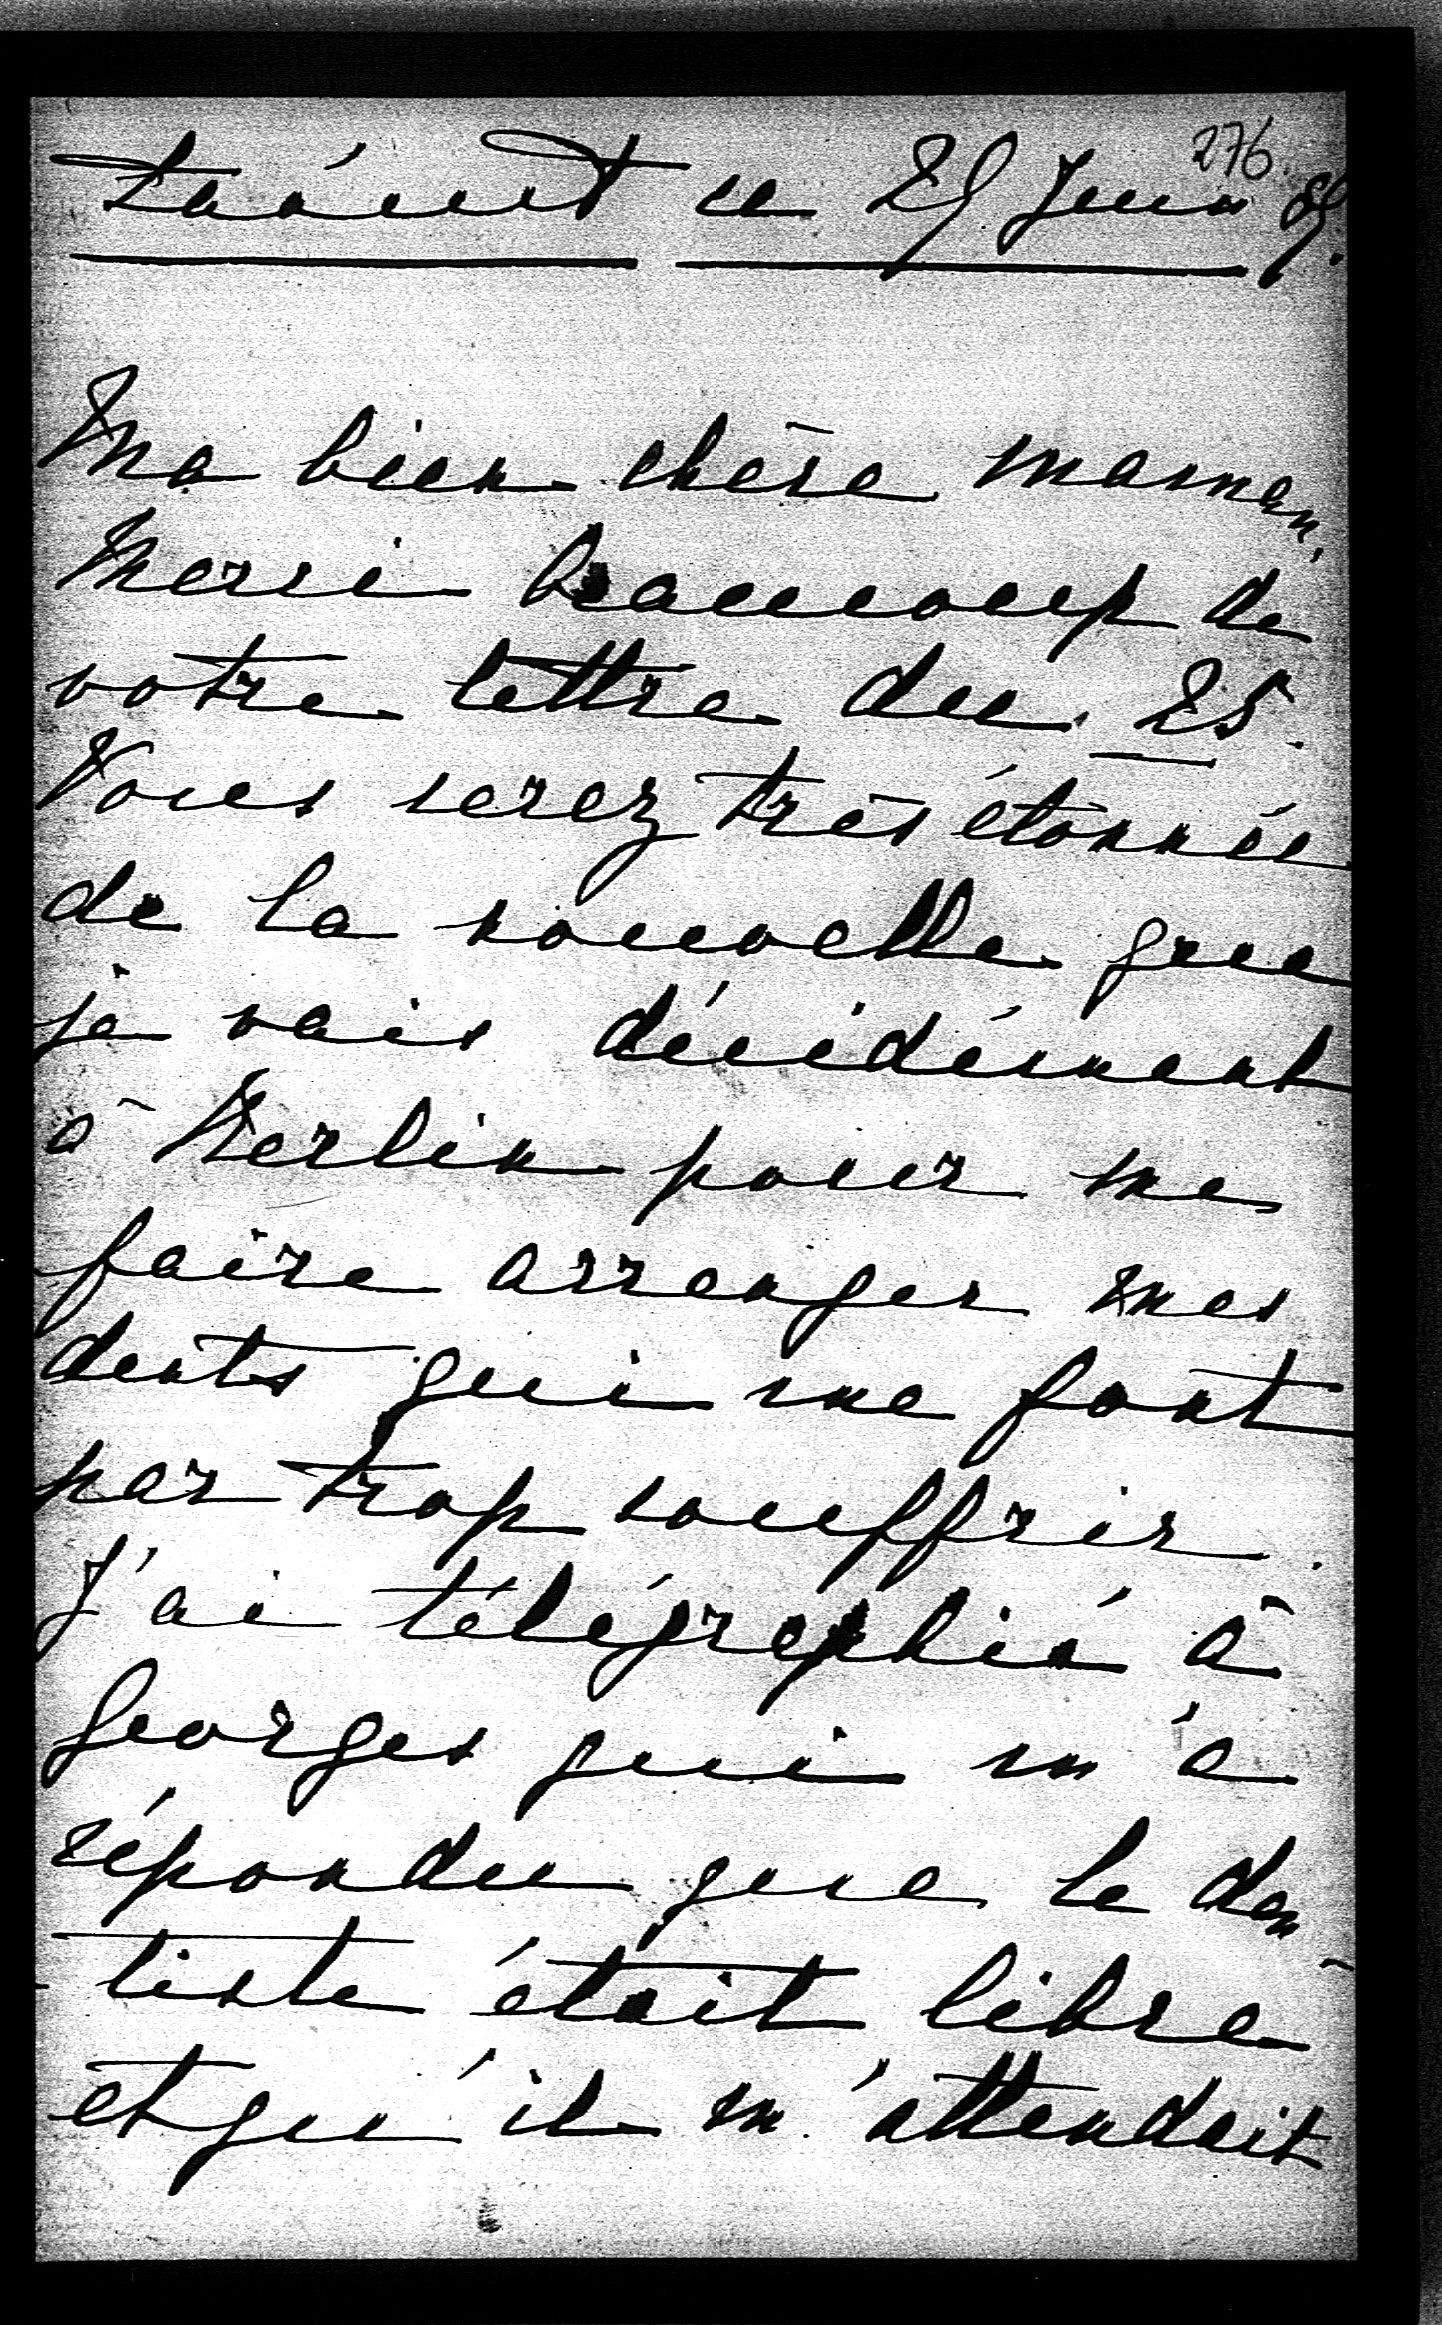 276.
ce 29 Juin 89.
Ma bien chère maman,
Merci beaucoup de
votre lettre du 25.
Vous serez très étonnée
de la nouvelle que
je vais décidément
à Berlin pour me
faire arranger mes
dents qui me font
par trop souffrir.
J'ai télégraphié à
Georges qui m'a
répondu que le den-
tiste était libre
et qu'il m'attendait